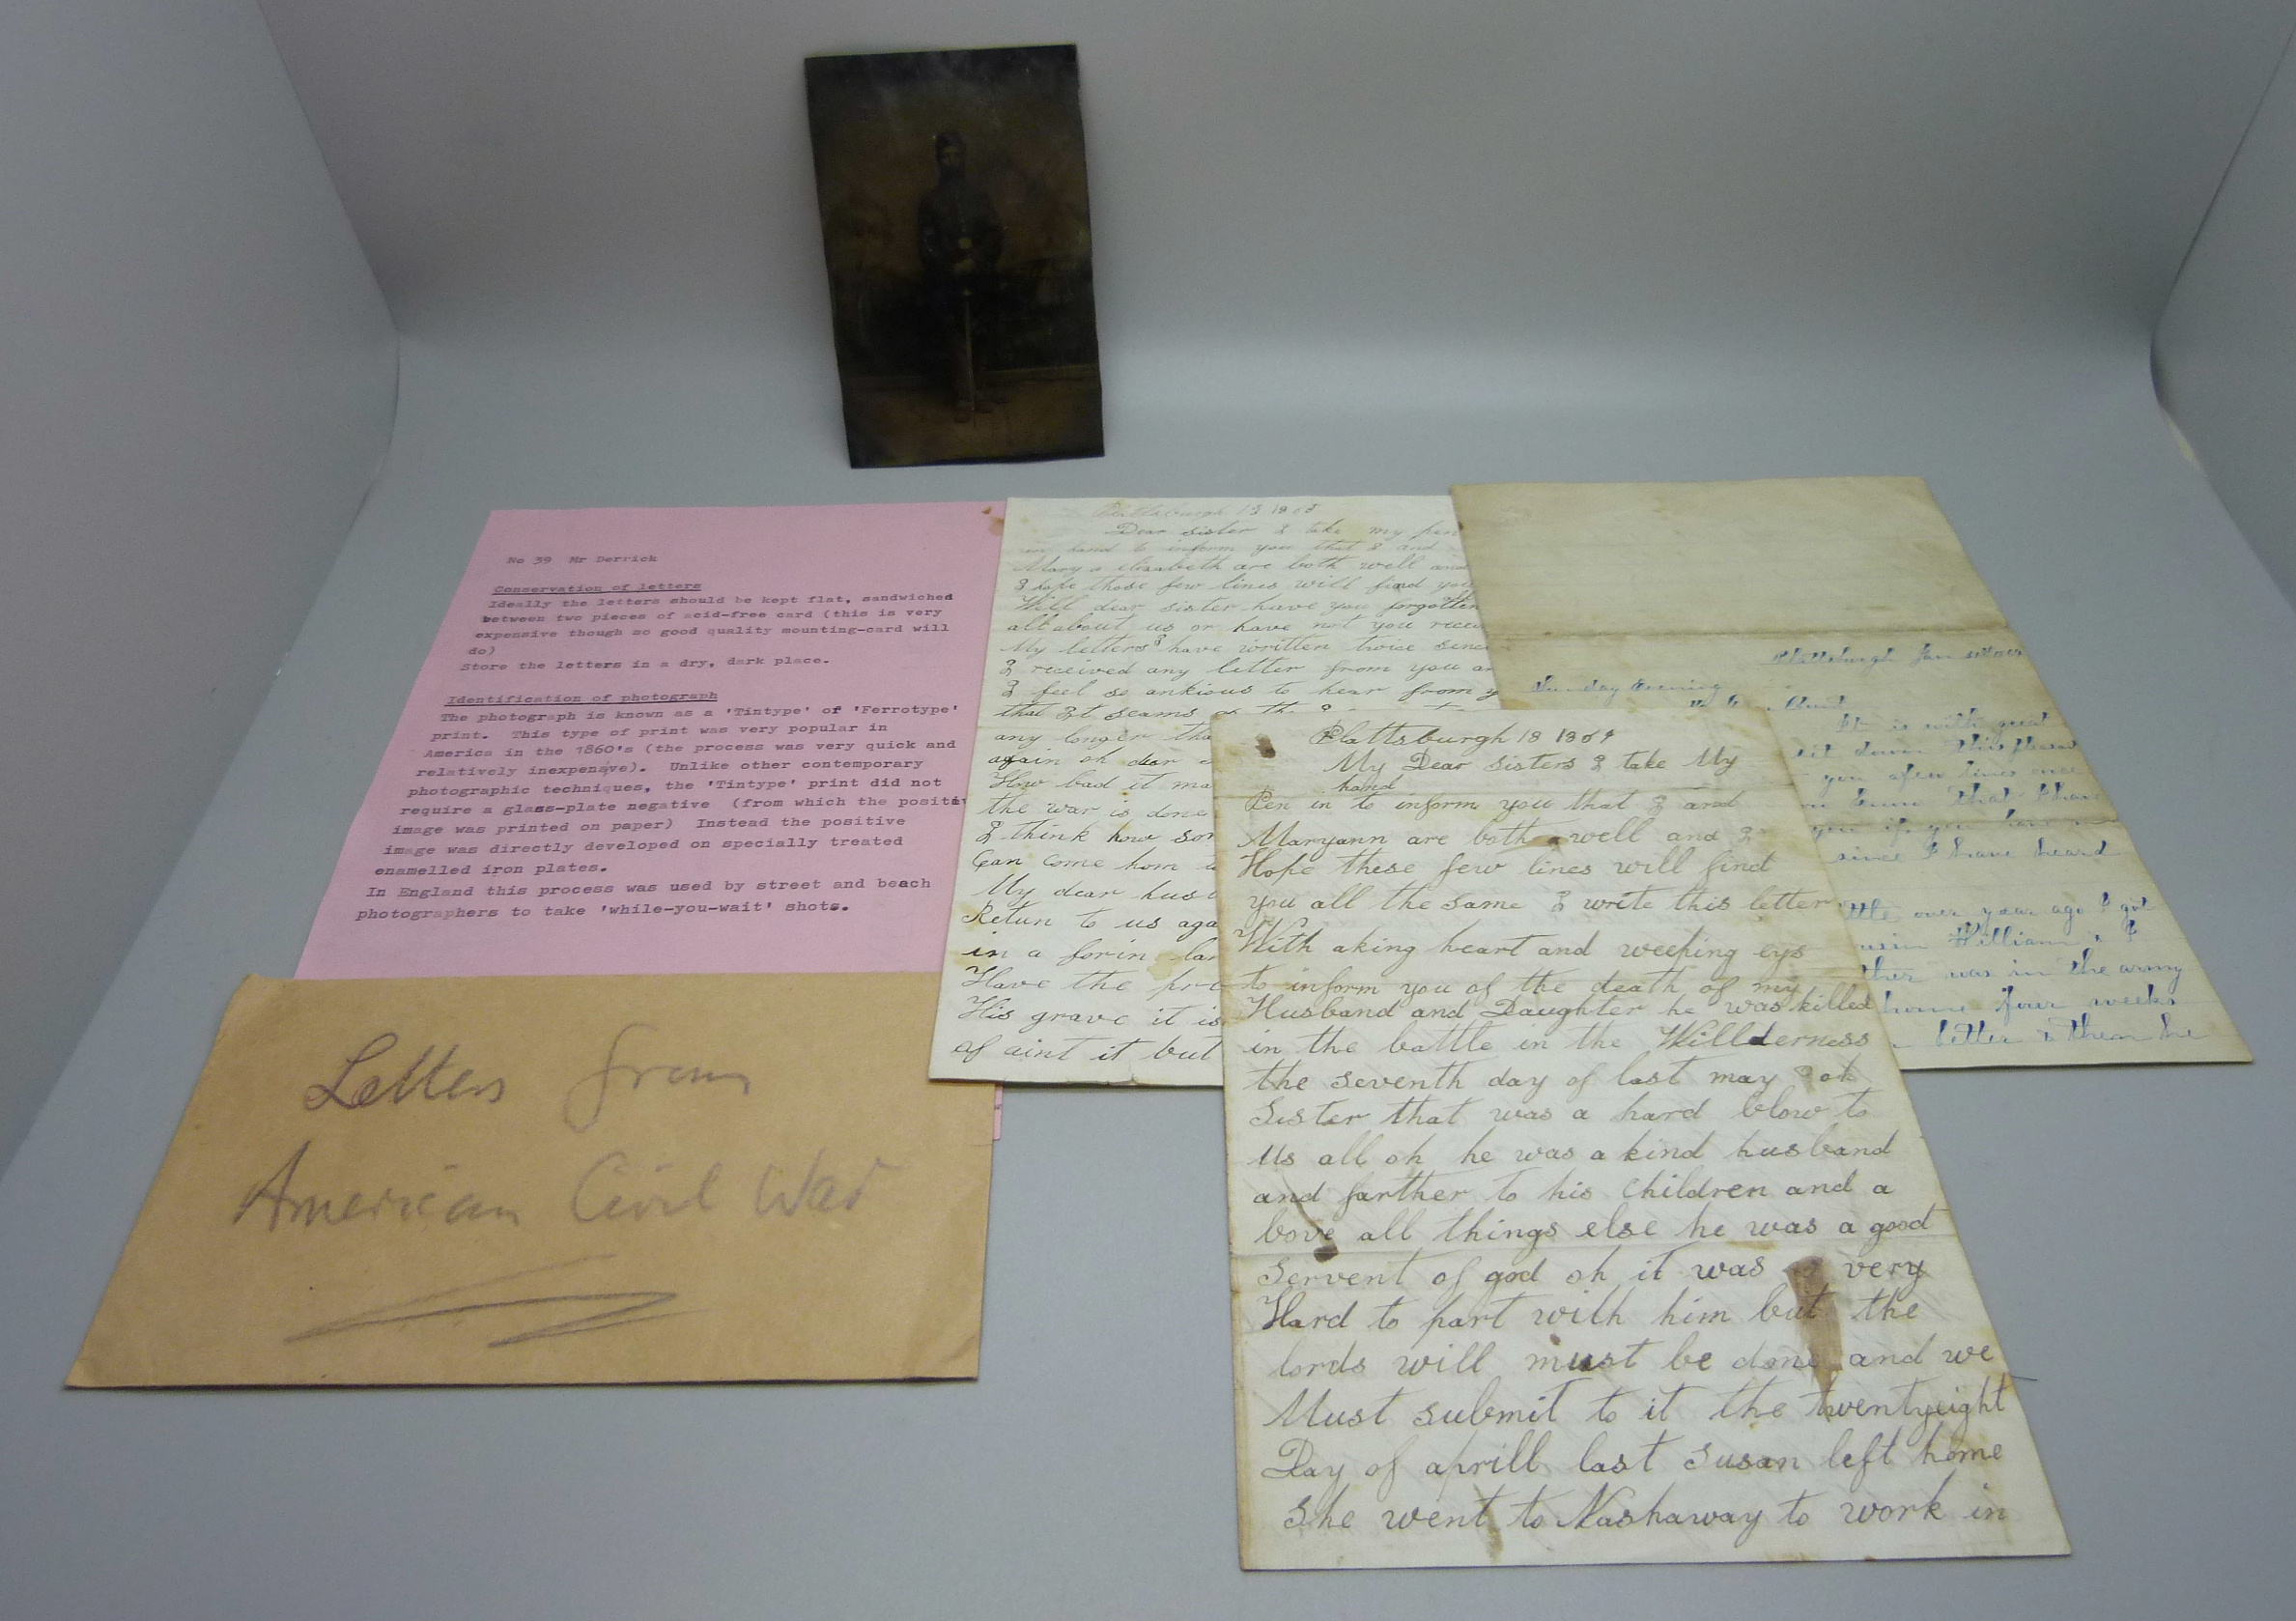 No 39 Mr Derrick
Conservation of letters
Ideally the letters should be kept flat, sandwiched
between two pieces of acid-free card (this is very
expensive though so good quality mounting-card will
do)
Store the letters in a dry, dark place.
Identification of photograph
The photograph is known as a 'Tintype' of 'Ferrotype'
print. This type of print was very popular in
America in the 1860's (the process was very quick and
relatively inexpensve). Unlike other contemporary
photographic techniques, the 'Tintype' print did not
require a glass-plate negative (from which the positiv
image was printed on paper) Instead the positive
image was directly developed on specially treated
enamelled iron plates.
In England this process was used by street and beach
photographers to take 'while-you-wait' shots.
Letters from
American Civil War
Plattsburgh
Dear sister I take my pen
in hand to inform you that I and
Mary elizabeth are both well and
I hope those few lines will find you
Will dear sister have you forgotten
all about us or have not you
My letters I have written twice
I received any letter from you
I feel so ankious to hear from
that It seams
any longer
again oh dear
How bad it
the war is done
I think how
Can Come hom
My dear
Retun to us
in a forin
Have the
His grave it is
of aint it but
Plattsburgh 18
My Dear sisters I take My
hand
Pen in to inform you that I and
Maryann are both well and I
Hope these few lines will find
you all the same I write this letter
With aking heart and weeping eys
to inform you of the death of my
Husband and Daughter he was killed
in the battle in the Willderness
the seventh day of last may oh
Sister that was a hard blow to
Us all oh he was a kind husband
and farther to his Children and a
bove all things else he was a good
Servent of god oh it was very
Hard to part with him but the
lords will must be done and we
Must submit to it the twentyeight
Day of aprill last Susan left home
She went to Nashaway to work in
Plattsburgh Jan
Sunday Evening
It is with great
sit down this
you a few lines once
that I have
you if you have
since I have heard
over year ago I got
William, I
was in the army
home four weeks
better & then he